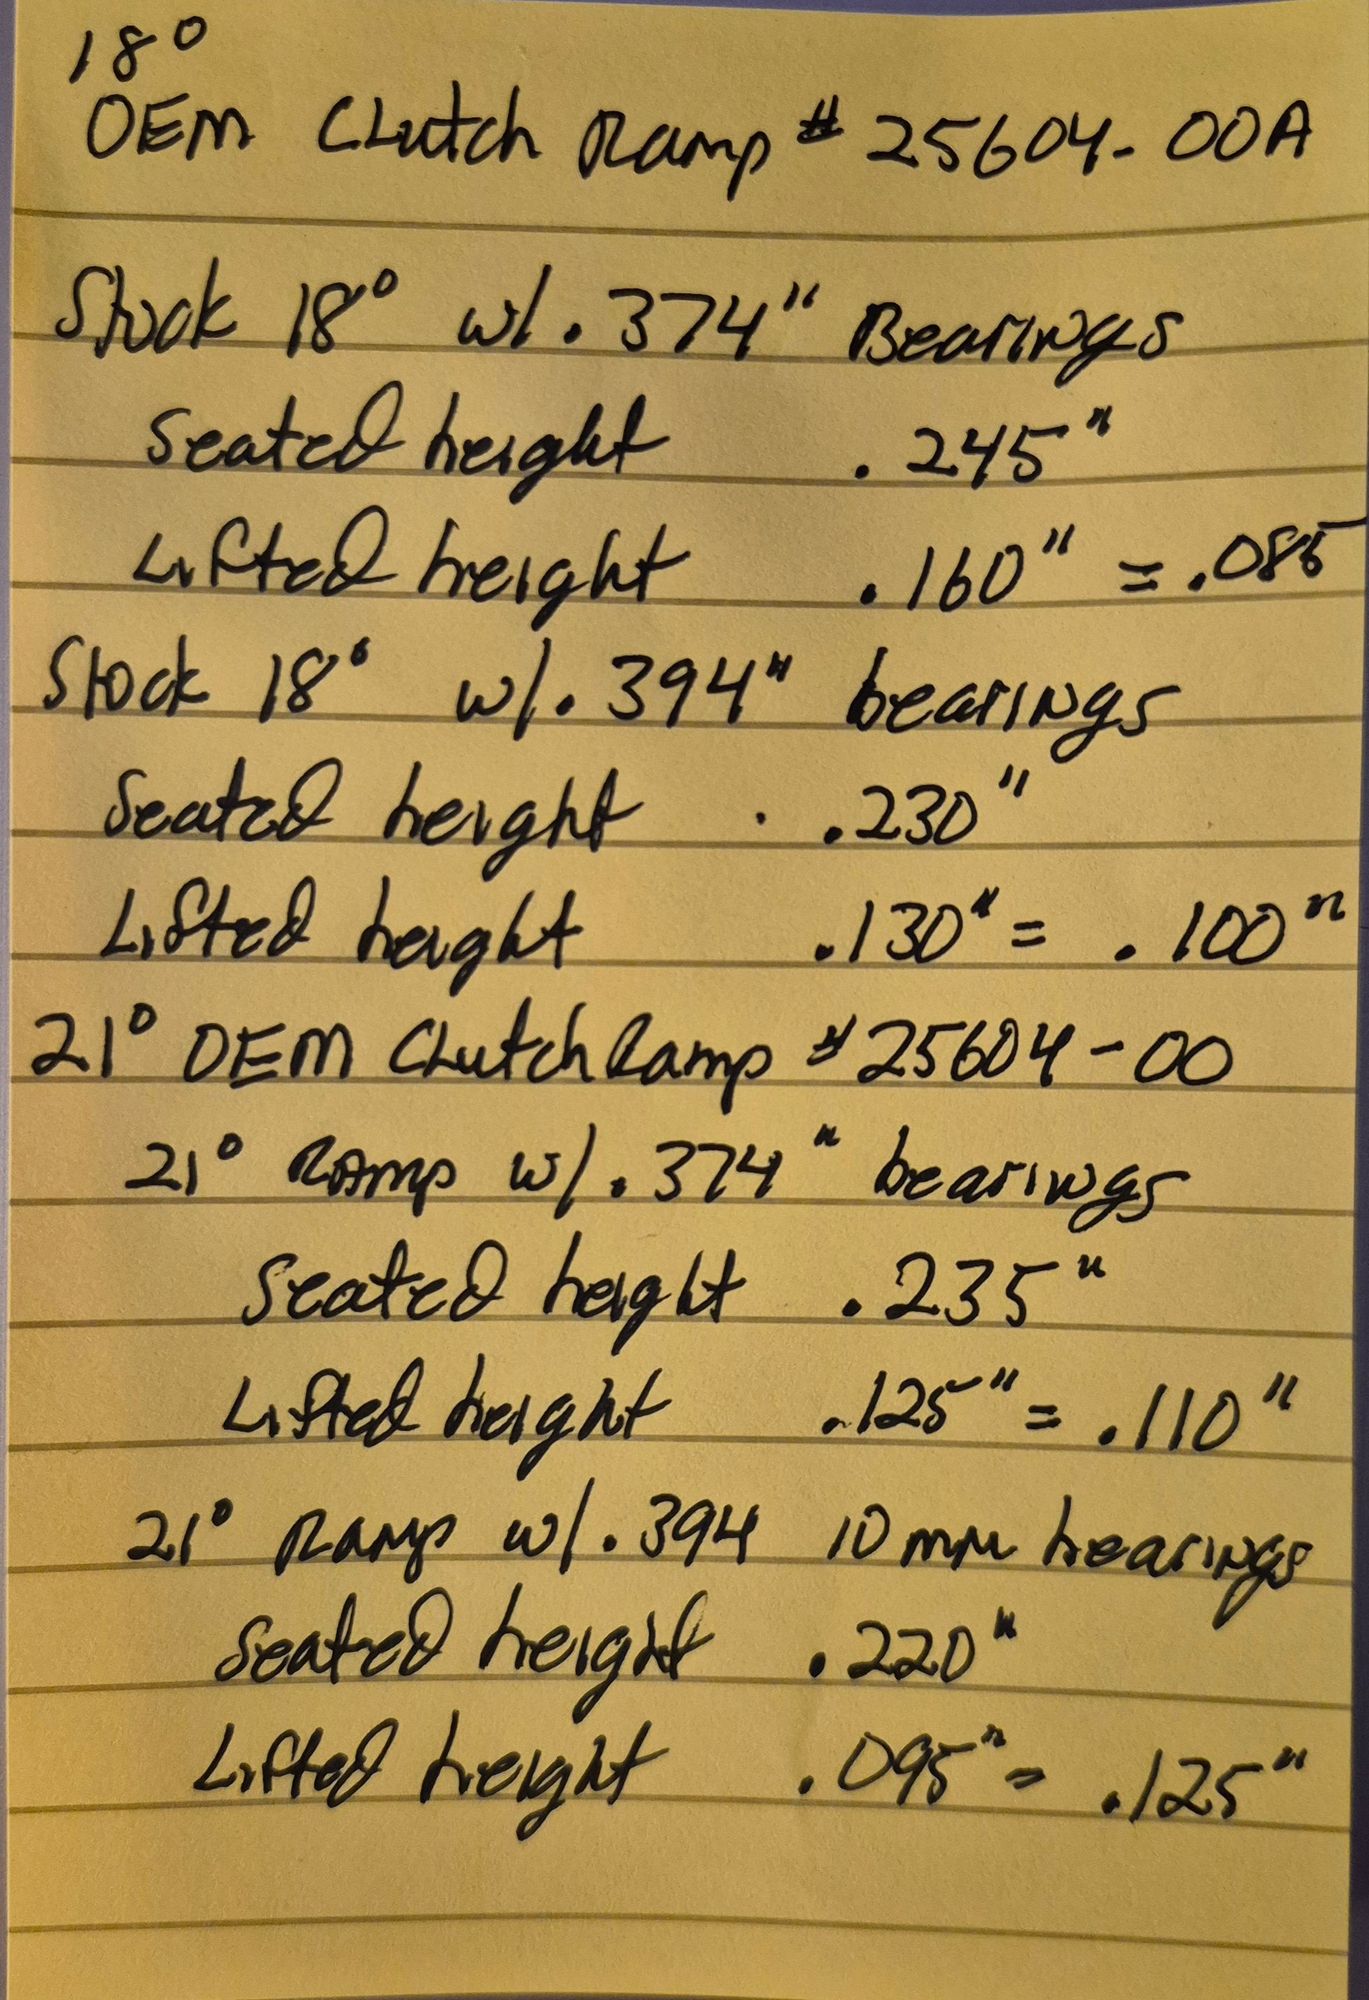 18°
OEM Clutch Ramp # 25604-00A
Stock 18° w/ .374" Bearings
Seated height .245"
Lifted height .160" = .085
Stock 18° w/ .394" bearings
Seated height .230"
Lifted height .130" = .100"
21° OEM Clutch Ramp #25604-00
21° Ramp w/ .374" bearings
Seated height .235"
Lifted height .125" = .110"
21° Ramp w/ .394 10mm bearings
Seated height .220"
Lifted height .095" = .125"